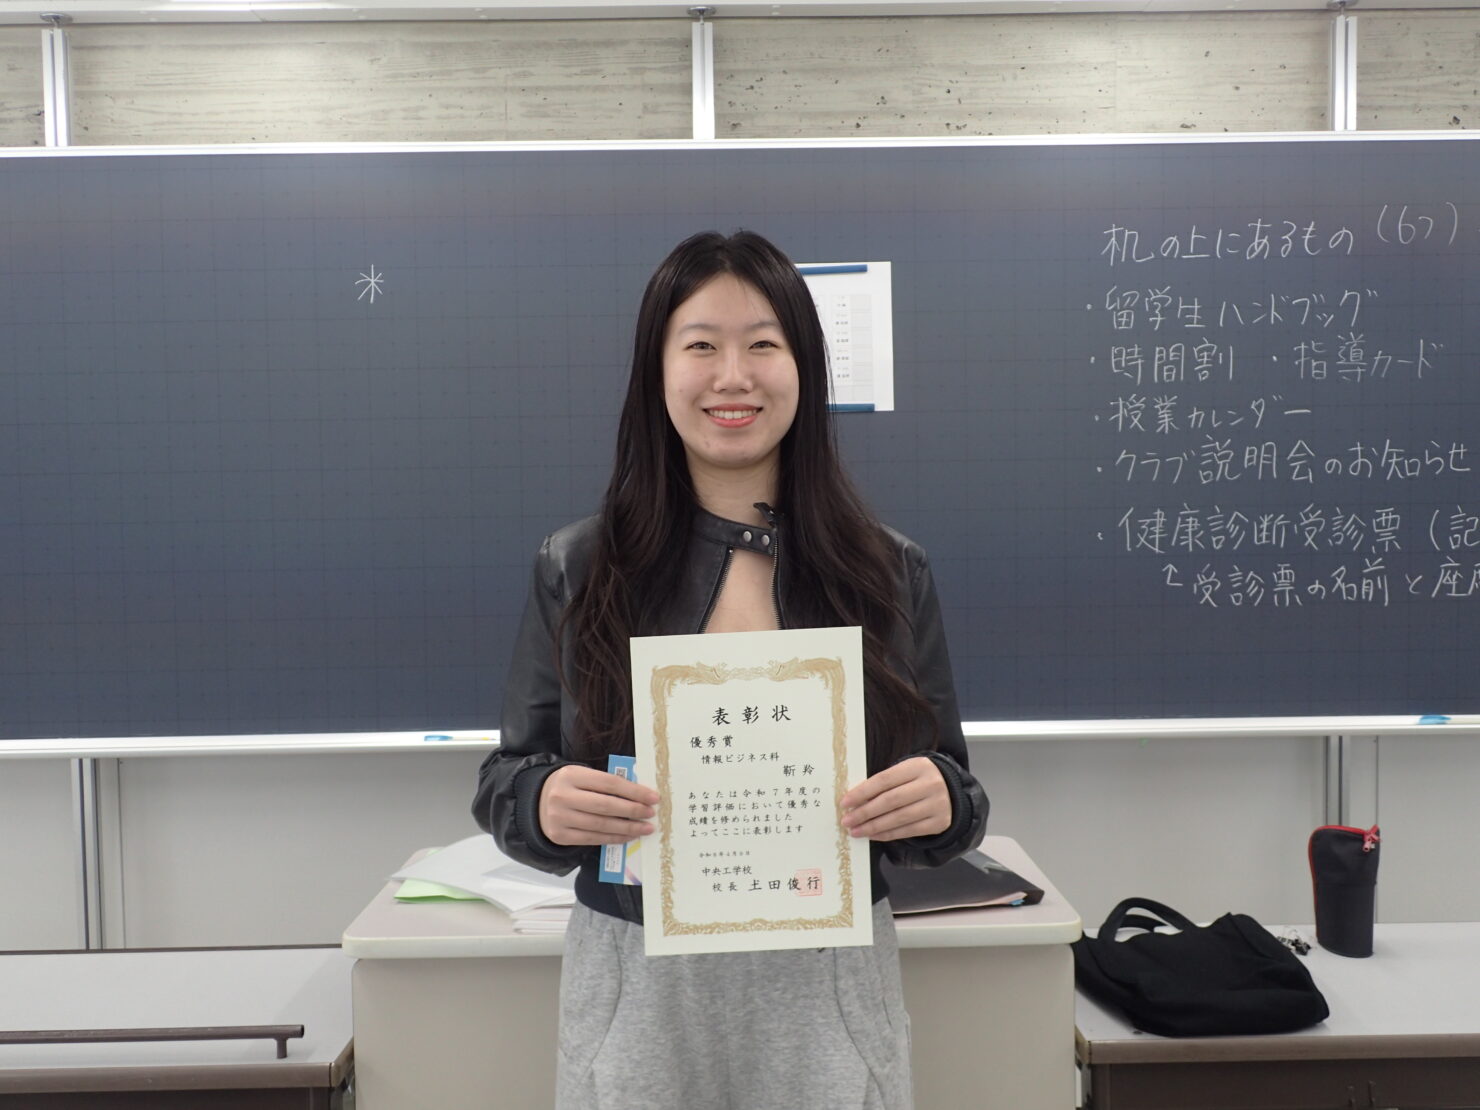 机の上にあるもの(6つ)
・留学生ハンドブック
・時間割 ・指導カード
・授業カレンダー
・クラブ説明会のお知らせ
・健康診断受診票(記
↑受診票の名前と座
表彰状
優秀賞
情報ビジネス科
靳羚
あなたは令和7年度の
学習評価において優秀な
成績を修められました
よってここに表彰します
中央工学校
校長 土田俊行